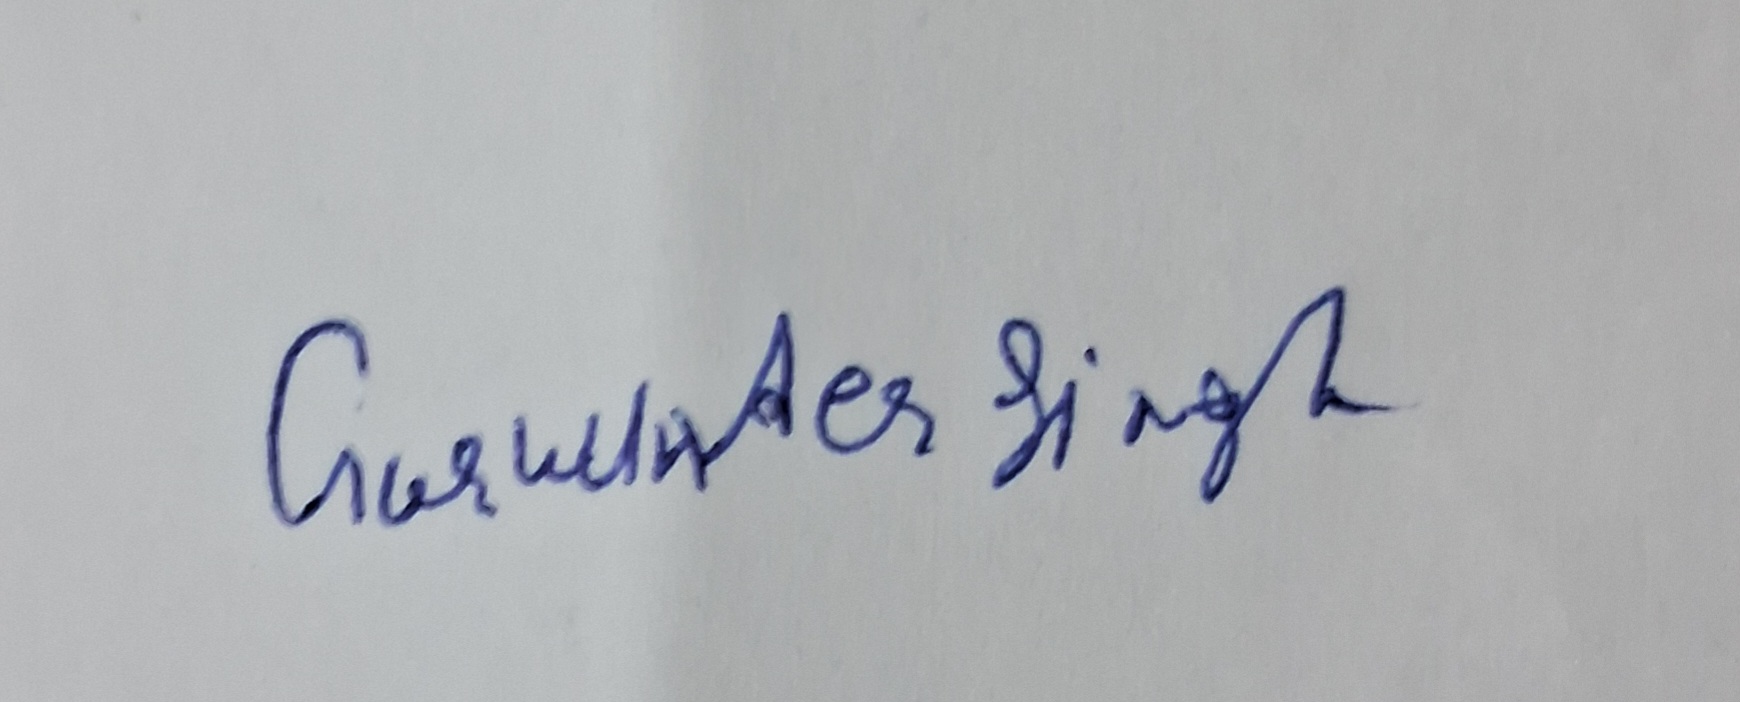 Gurwinder Singh